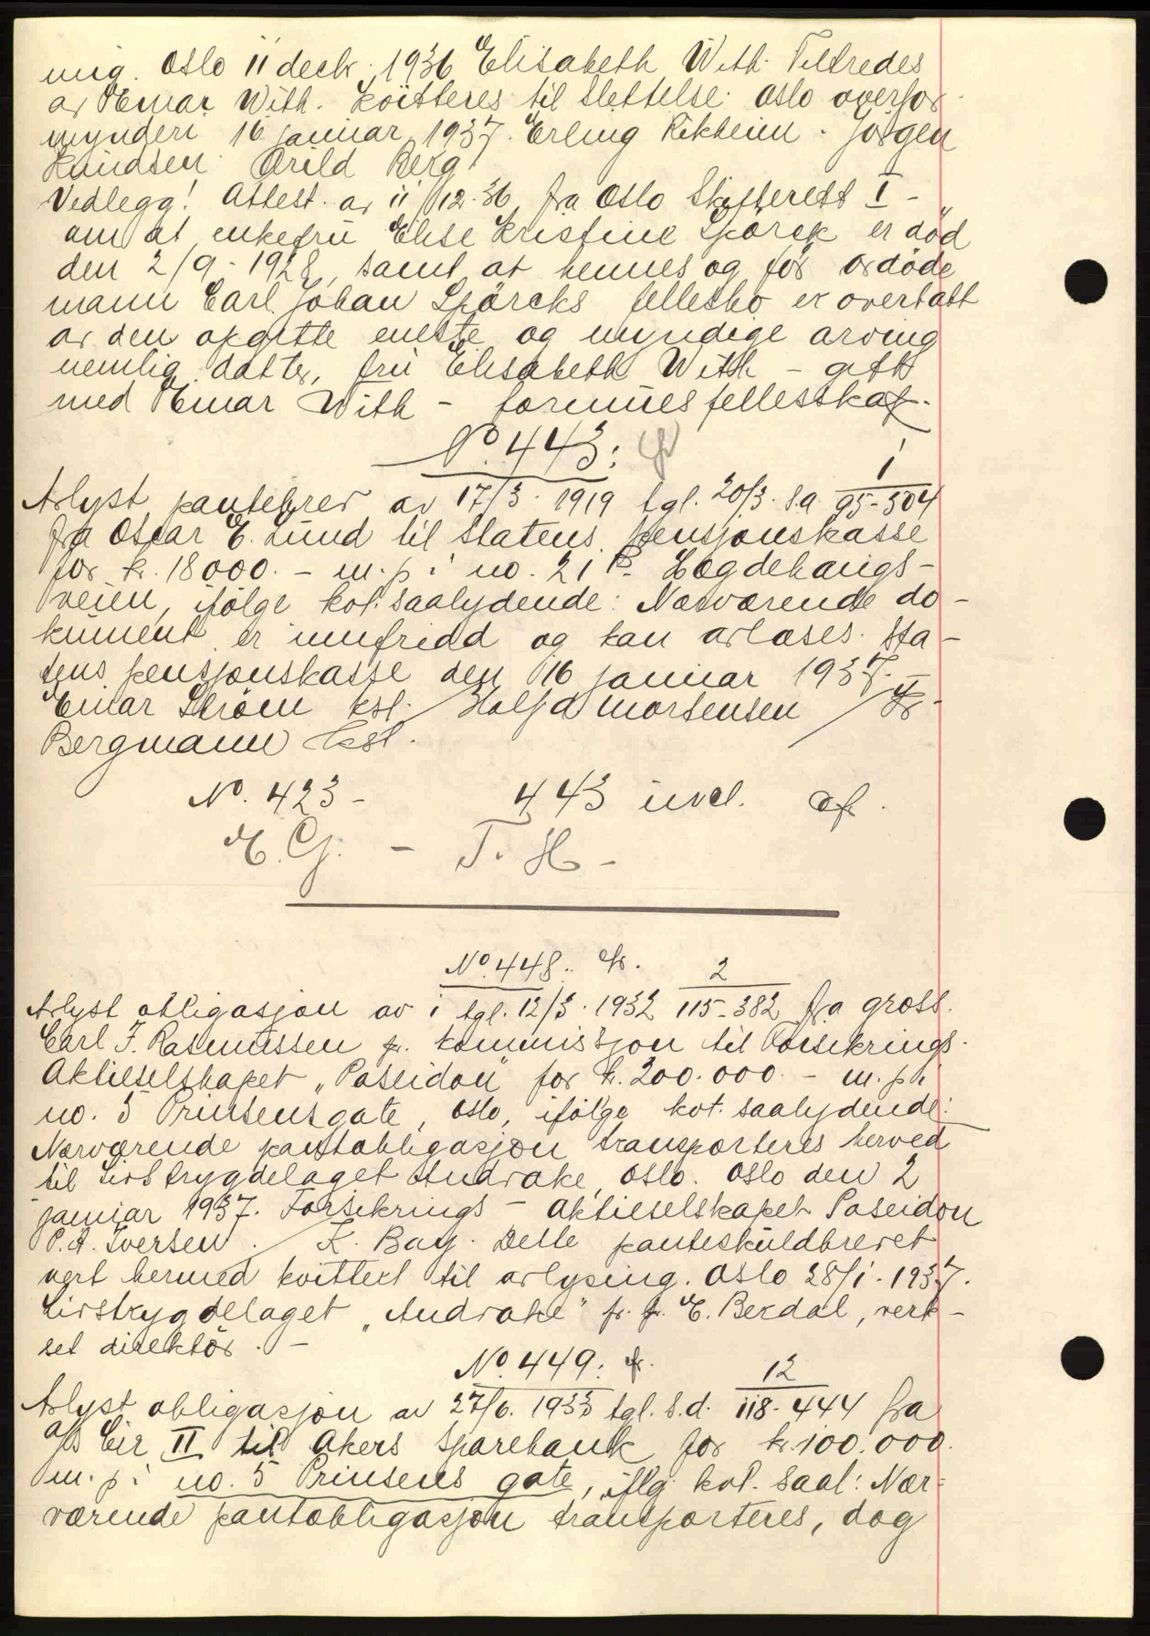 mig. Oslo 11 decbr. 1936 Elisabeth With. Tiltredes
av Einar With. Kvitteres til slettelse. Oslo overfor-
mynderi 16 januar 1937. Erling Rikheim. Jörgen
Knudsen. Arild Berg
Vedlegg! Attest. av 11/12.36 fra Oslo Skifterett I -
om at enkefru Elise Kristine Spørck er död
den 2/9-1928, samt at hennes og för avdöde
mann Carl Johan Spörcks fellesbo er overtatt
av den opgitte eneste og myndige arving
nemlig datter, fru Elisabeth With - gift
med Einar With - formuesfellesskap.
No. 443:
1
Avlyst pantebrev av 17/3. 1919 tgl. 20/3. s.a. 95-504
fra Oscar E. Lund til Statens pensjonskasse
for kr. 18000. - m. p. i no. 21 b. Hegdehaugs-
veien, ifölge kvt. saalydende: Nærværende do-
kument er innfridd og kan avlöses. Sta-
tens pensjonskasse den 16 januar 1937.
Einar Ström kst. / Halfd Mortensen /
Bergmann kst.
No. 423 - 443 incl. ef.
E. Gj. - T. H -
No. 448: fr. 2
Avlyst obligasjon av i tgl. 12/3. 1932 115-382 fra gross.
Carl F. Rasmussen pr. kommisjon til Forsikrings-
Aktieselskapet "Poseidon" for kr. 200.000. - m. p. i
no. 5 Prinsens gate, Oslo, ifölge kvt. saalydende:
Nærværende pantobligasjon transporteres herved
til Livstrygdelaget Andvake, Oslo. Oslo den 2
januar 1937. Forsikrings - aktieselskapet Poseidon
P. A. Iversen. / K. Bay. Dette panteskuldbrevet
vert hermed kvittert til avlysing. Oslo 28/1. 1937.
Livstrygdelaget "Andvake" p. p. E. Berdal, verk-
set direktör. -
No. 449: fr. 12
Avlyst obligasjon av 27/6. 1933 tgl. s.d. 118-444 fra
a/s Eir II til Akers Sparebank for kr. 100.000.
m. p. i no. 5 Prinsens gate, iflg. kvt. saal: Nær-
værende pantobligasjon transporteres, dog